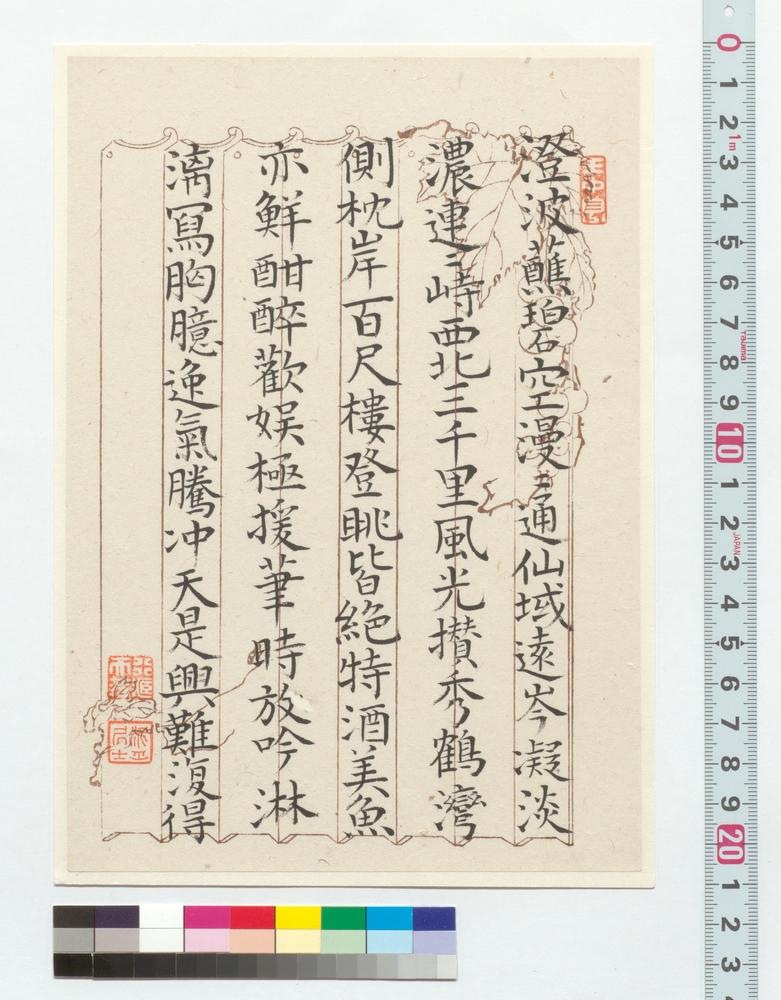 澄波蘸碧空漫〻通仙域遠岑凝淡
濃連〻峙西北三千里風光攅秀鶴灣
側枕岸百尺樓登眺皆絶特酒美魚
亦鮮酣醉歡娯極援筆時放吟淋
漓冩胸臆逸氣騰冲天是興難復得
0 1 2 1m 3 4 5 6 7 8 9 10 1 2 3 4 5 6 7 8 9 20 1 2 3
Tajima
JAPAN